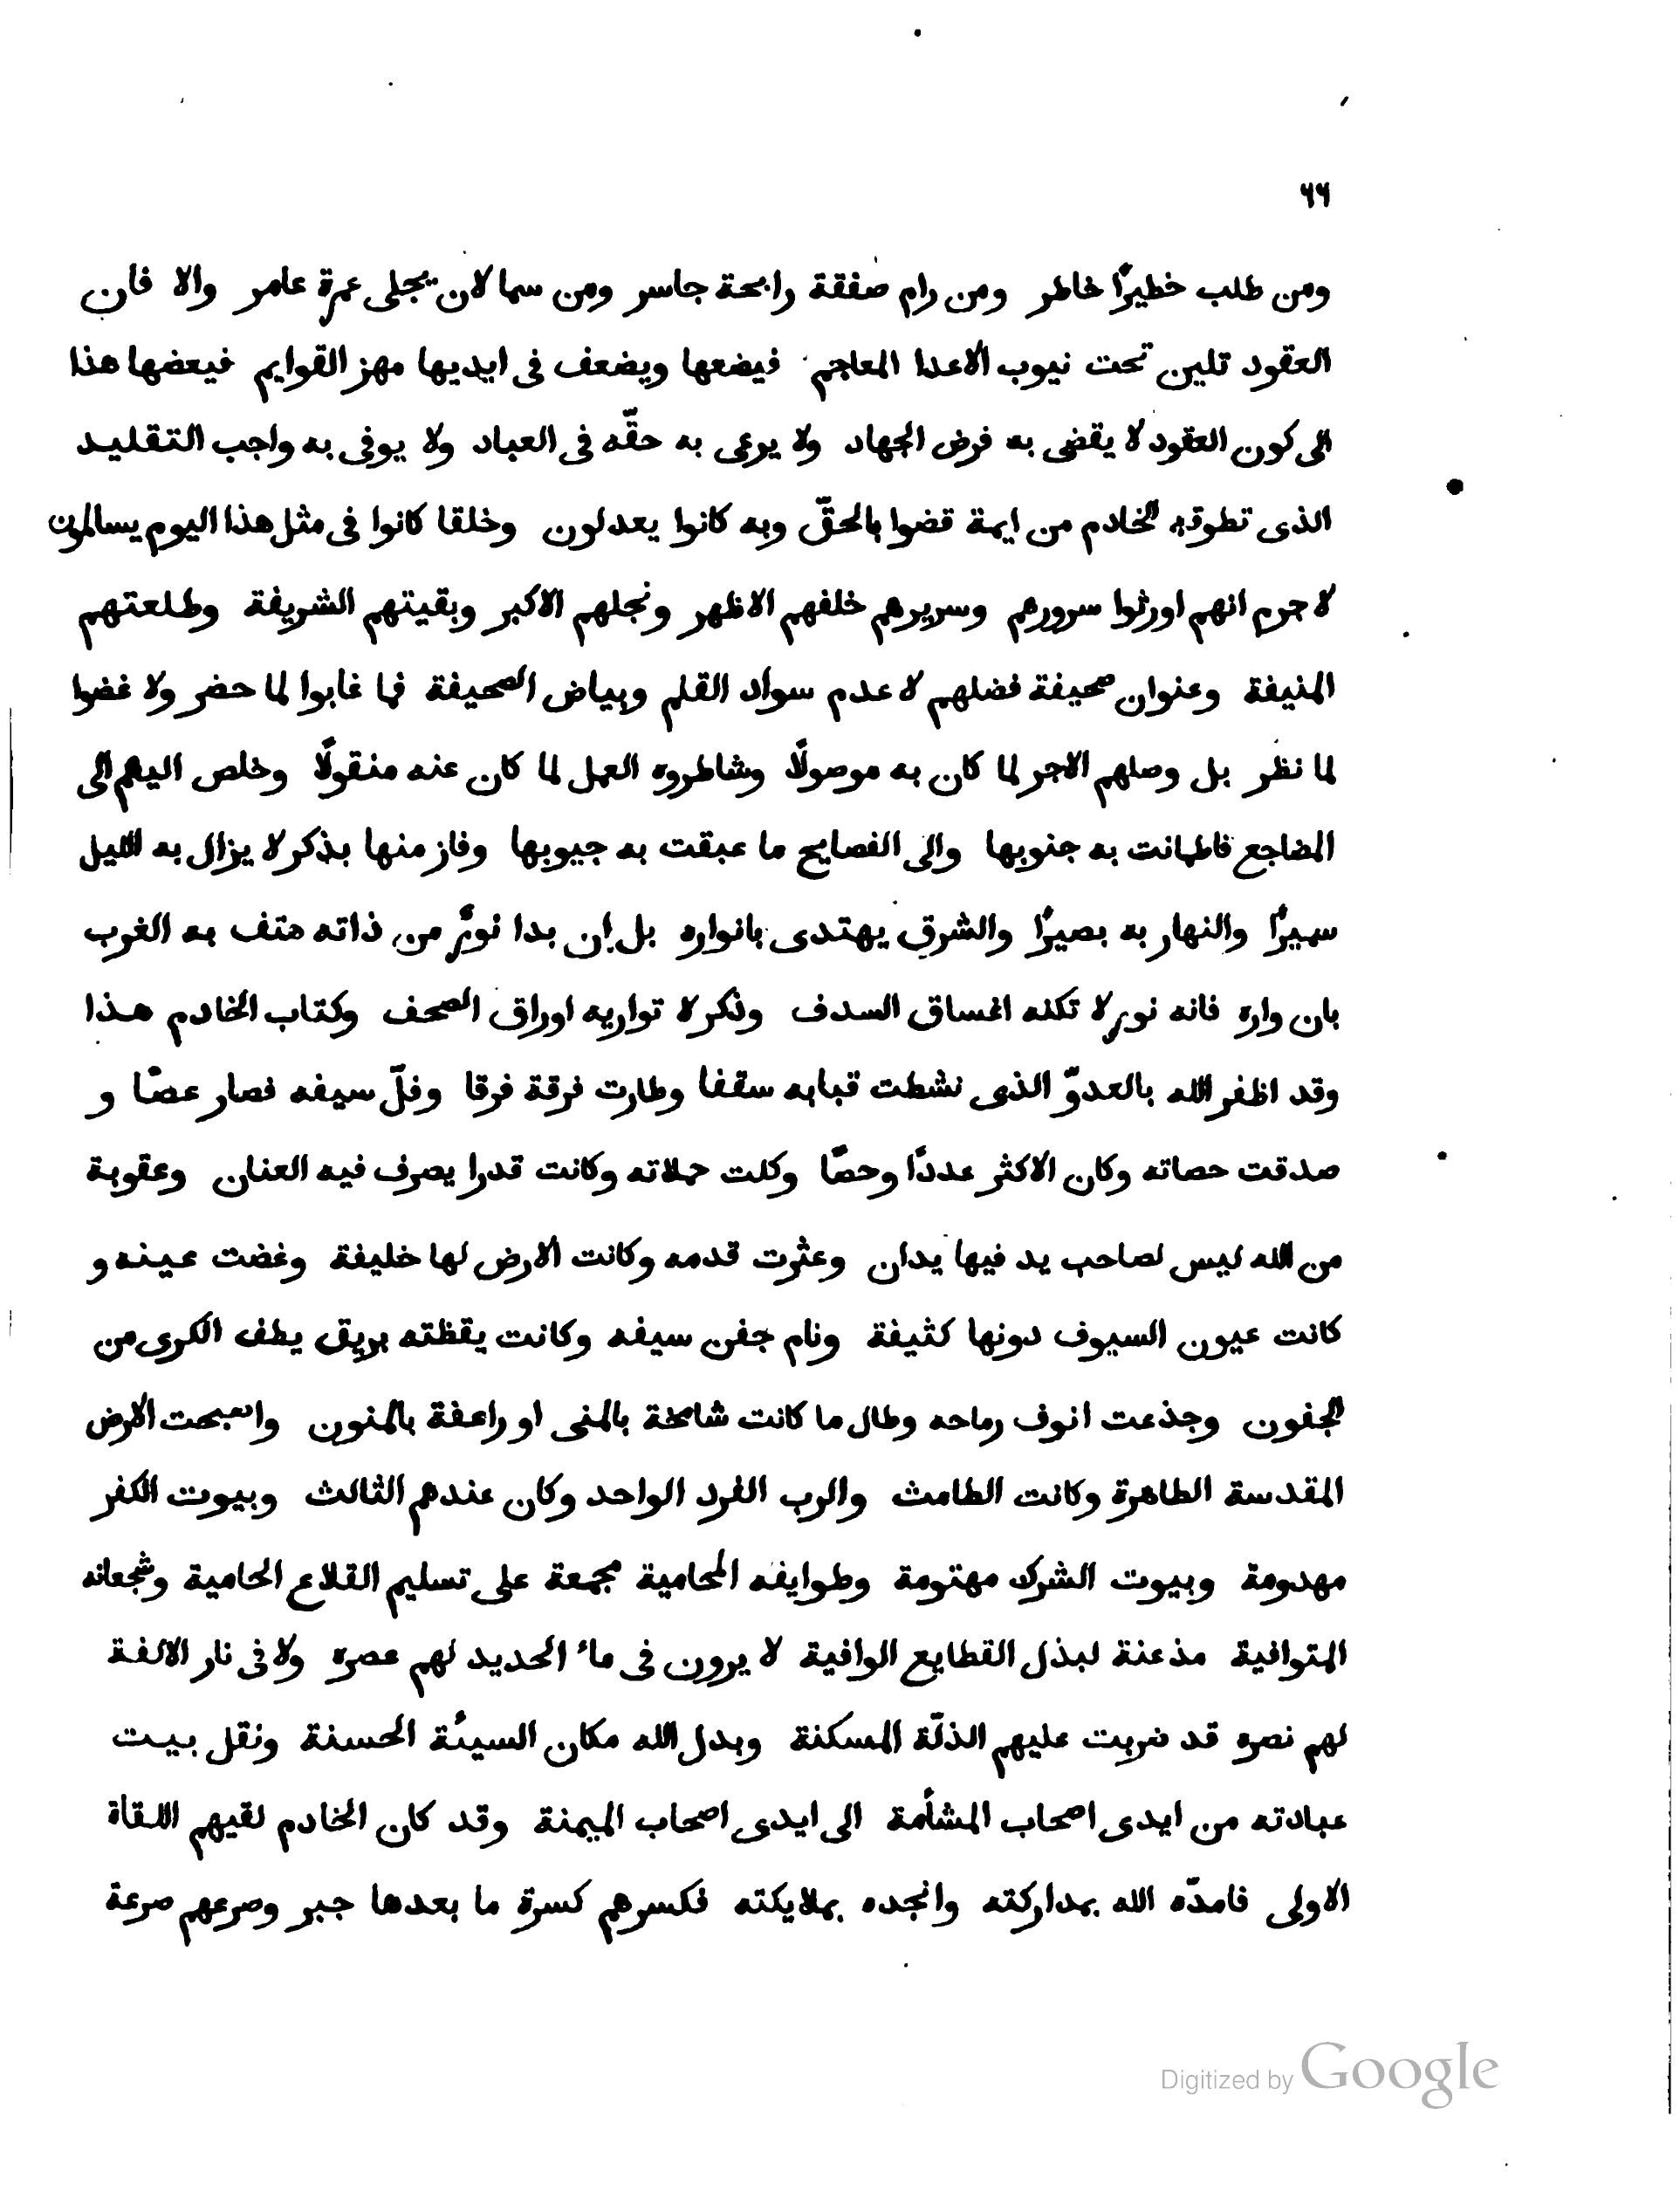 ٦٦
ومن طلب خطيرًا خاطر ومن رام صفقة رابحة جاسر ومن سما لان يجلى غمرة غامر والا فان
العقود تلين تحت نيوب الاعدا المعاجم فيضعها ويضعف فى ايديها مهز القوايم فيعضها هذا
الى كون العقود لا يقضى به فرض الجهاد ولا يرعى به حقّه فى العباد ولا يوفى به واجب التقليد
الذى تطوقه الخادم من ايمة قضوا بالحقّ وبه كانوا يعدلون وخلفا كانوا فى مثل هذا اليوم يسالمون
لا جرم انهم اورثوا سرورهم وسريرهم خلفهم الاظهر ونجلهم الاكبر وبقيتهم الشريفة وطلعتهم
المنيفة وعنوان صحيفة فضلهم لا عدم سواد القلم وبياض الصحيفة فما غابوا لما حضر ولا غضوا
لما نظر بل وصلهم الاجر لما كان به موصولًا وشاطروه العمل لما كان عنه منقولًا وخلص اليهم الى
المضاجع فاطمانت به جنوبها والى الفصايح ما عبقت به جيوبها وفاز منها بذكر لا يزال به الليل
سميرًا والنهار به بصيرًا والشرق يهتدى بانواره بل إن بدا نورٌ من ذاته هتف به الغرب
بان واره فانه نور لا تكنه اغساق السدف وذكر لا تواريه اوراق الصحف وكتاب الخادم هذا
وقد اظفر الله بالعدوّ الذى نشطت قبابه سقفا وطارت فرقة فرقا وفلّ سيفه فصار عصًا و
صدقت حصاته وكان الاكثر عددًا وحصًا وكلت حملاته وكانت قدرا يصرف فيه العنان وعقوبة
من الله ليس لصاحب يد فيها يدان وعثرت قدمه وكانت الارض لها خليفة وغضت عينه و
كانت عيون السيوف دونها كثيفة ونام جفن سيفه وكانت يقظته بريق يطف الكرى من
الجفون وجذعت انوف رماحه وطال ما كانت شامخة بالمنى او راعفة بالمنون واصبحت الارض
المقدسة الطاهرة وكانت الطامث والرب الفرد الواحد وكان عندهم الثالث وبيوت الكفر
مهدومة وبيوت الشرك مهتومة وطوايفه المحامية مجمعة على تسليم القلاع الحامية وشجعانه
المتوافية مذعنة لبذل القطايع الوافية لا يرون فى ماء الحديد لهم عصرة ولا فى نار الالفة
لهم نصرة قد ضربت عليهم الذلّة المسكنة وبدل الله مكان السيئة الحسنة ونقل بيت
عبادته من ايدى اصحاب المشأمة الى ايدى اصحاب الميمنة وقد كان الخادم لقيهم اللقاة
الاولى فامدّه الله بمداركته وانجده بملايكته فكسرهم كسرة ما بعدها جبر وصرعهم صرعة
Digitized by Google